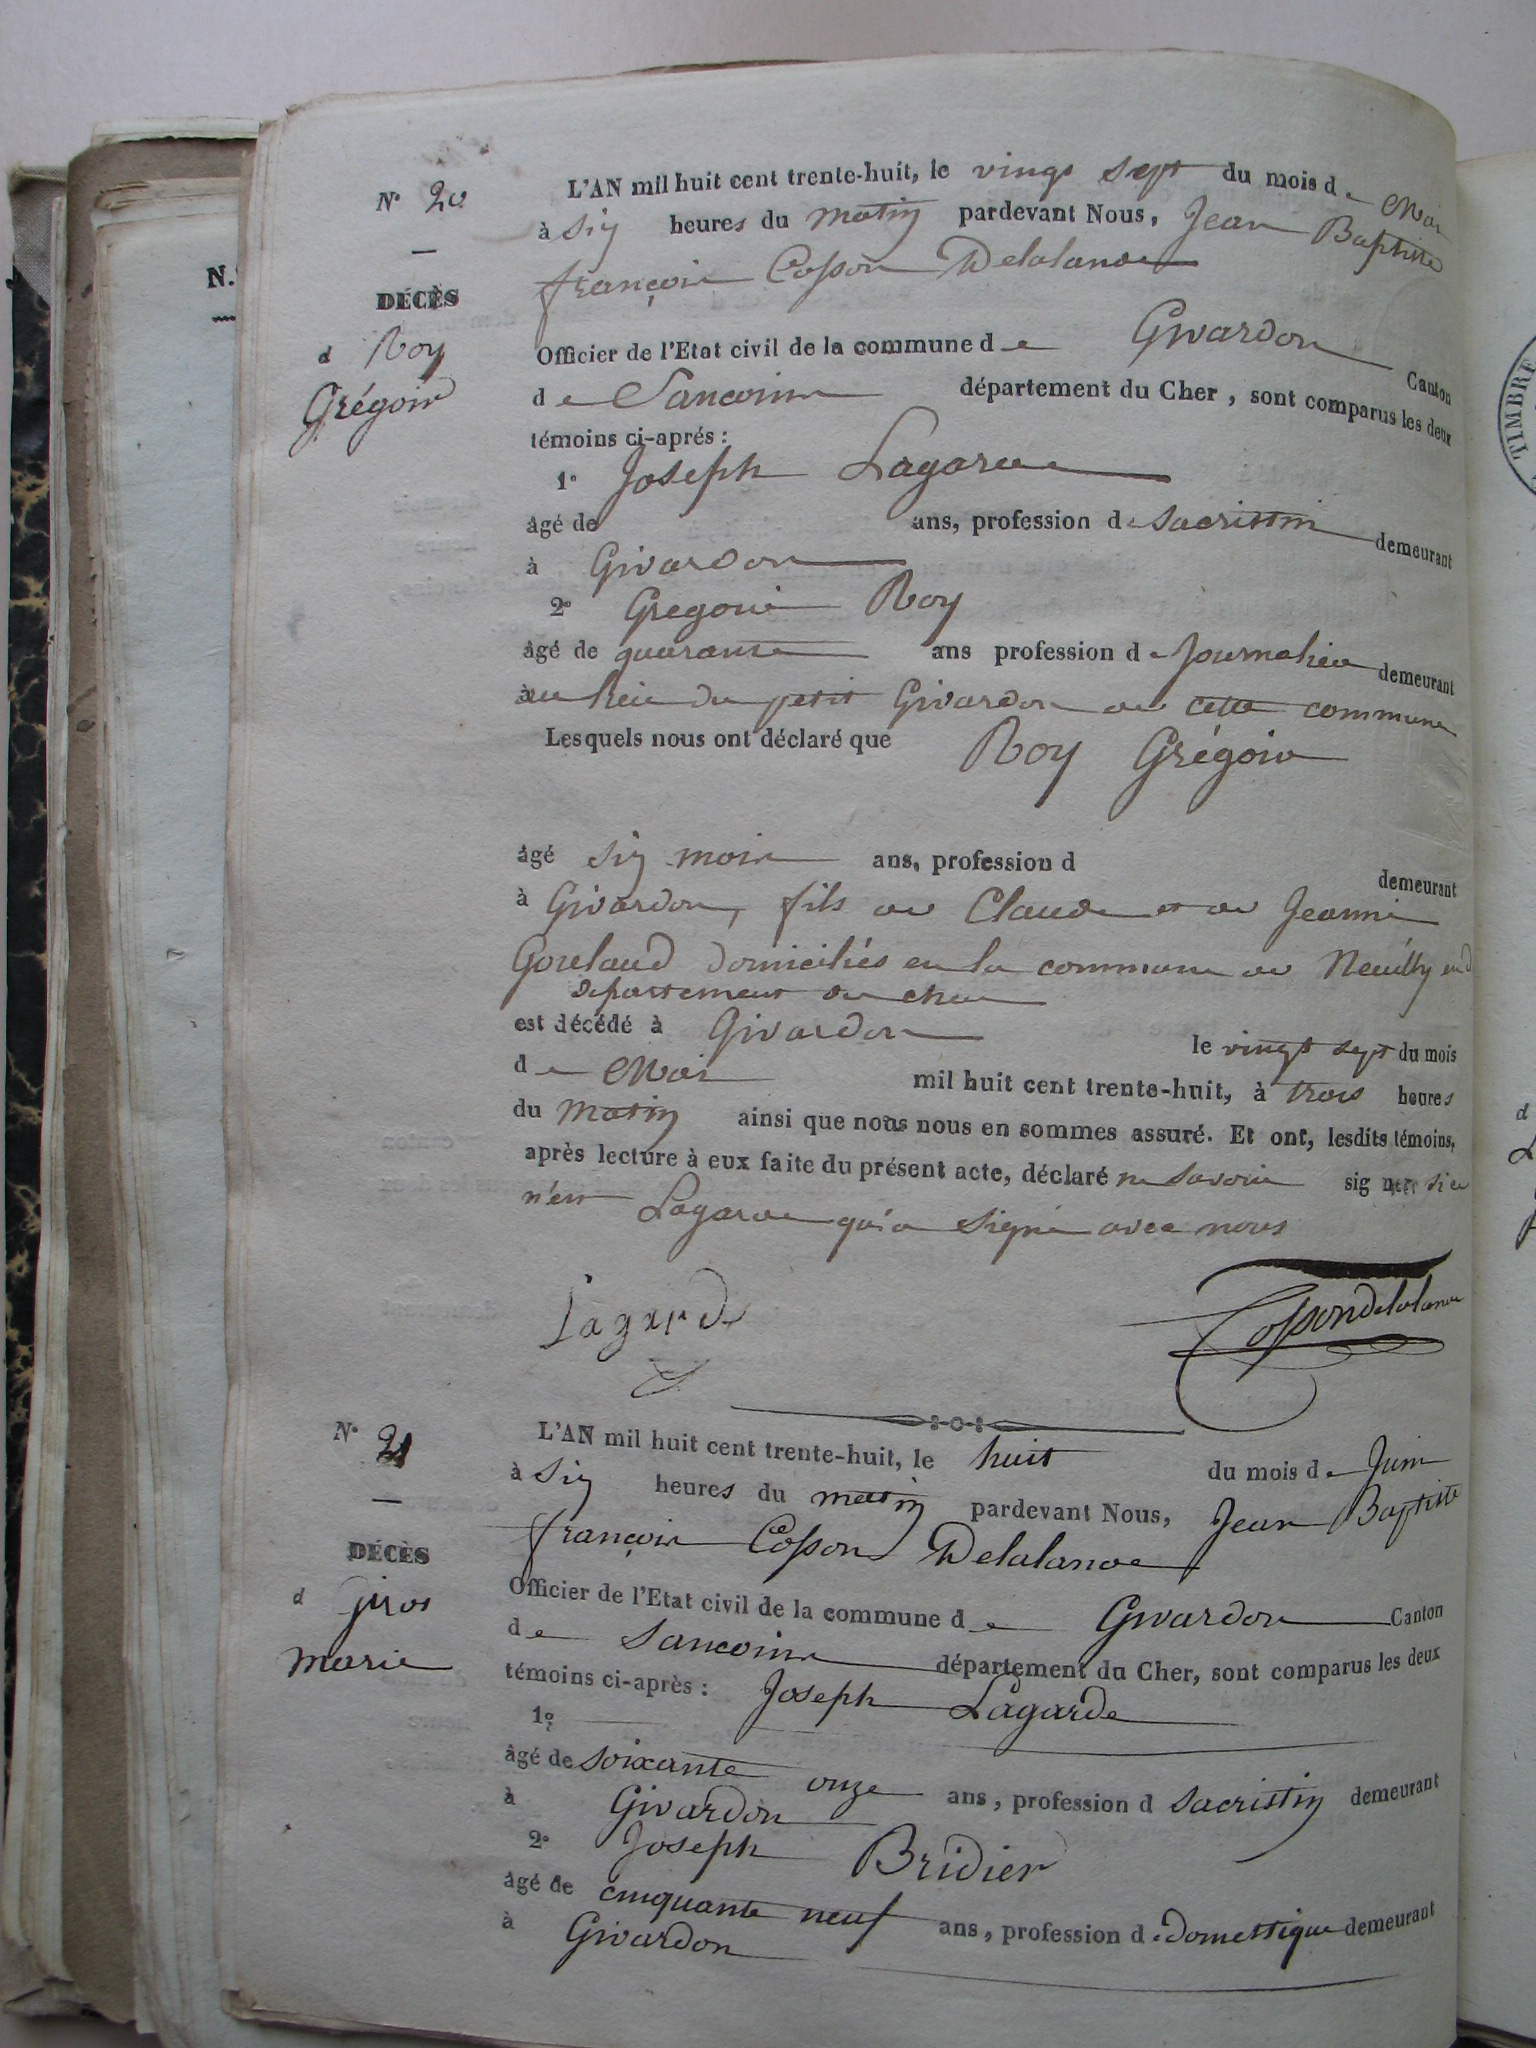 N.
N° 20
DÉCÈS
d Roy
Grégoire
L'AN mil huit cent trente-huit, le vingt sept du mois de Mai
à six heures du matin pardevant Nous, Jean Baptiste
françois Cosson Delalande
Officier de l'Etat civil de la commune de Givardon Canton
de Sancoins département du Cher, sont comparus les deux
témoins ci-après :
1° Joseph Lagarde
âgé de ans, profession de sacristin demeurant
à Givardon
2° Grégoire Roy
âgé de quarante ans profession de journalier demeurant
au lieu du petit Givardon de cette commune
Lesquels nous ont déclaré que Roy Grégoire
âgé six mois ans, profession d demeurant
à Givardon, fils de Claude et de Jeanne
domiciliés en la commune de Neuilly en d
département du cher
est décédé à Givardon le vingt sept du mois
de Mai mil huit cent trente-huit, à trois heures
du matin ainsi que nous nous en sommes assuré. Et ont, lesdits témoins,
après lecture à eux faite du présent acte, déclaré ne savoir signer si ce
n'est Lagarde qui a signé avec nous
Lagarde
Cossondelalande
N° 21
DÉCÈS
d
Marie
L'AN mil huit cent trente-huit, le huit du mois de Juin
à six heures du matin pardevant Nous, Jean Baptiste
françois Cosson Delalande
Officier de l'Etat civil de la commune de Givardon Canton
de Sancoins département du Cher, sont comparus les deux
témoins ci-après : Joseph Lagarde
1°
âgé de soixante onze ans, profession d sacristin demeurant
à Givardon
2° Joseph Bridier
âgé de cinquante neuf ans, profession de domestique demeurant
à Givardon
TIMBRE